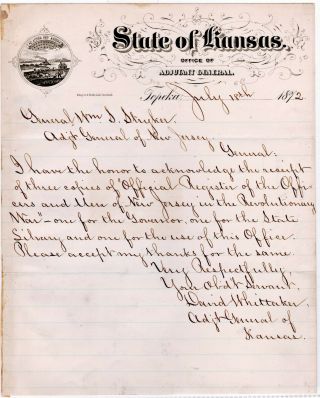 State of Kansas.
OFFICE OF
ADJUTANT GENERAL.
Topeka, July 18th 1872
General Wm S. Stryker
Adjt General of New Jersey
General:
I have the honor to acknowledge the receipt
of three copies of "Official Register of the Offi-
cers and Men of New Jersey in the Revolutionary
War" - one for the Governor, one for the State
Library and one for the use of this Office.
Please accept my thanks for the same.
Very Respectfully,
Your Obdt Servant,
David Whittaker,
Adjt General of
Kansas.